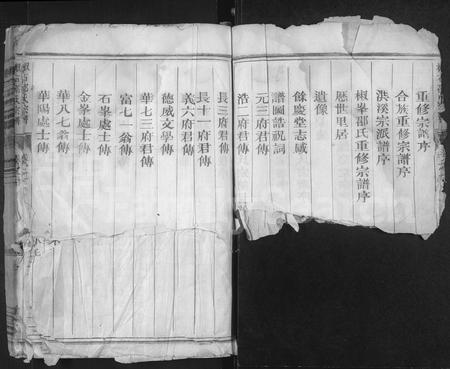 重修宗譜序
合族重修宗譜序
洪溪宗派譜序
椒峯邵氏重修宗譜序
歷世里居
遺像
餘慶堂志感
譜圖誥祝詞
元二府君傳
浩二府君傳
長三府君傳
長十一府君傳
義六府君傳
德威文學傳
華七三府君傳
富七一翁傳
石峯處士傳
金峯處士傳
華八七翁傳
華陽處士傳